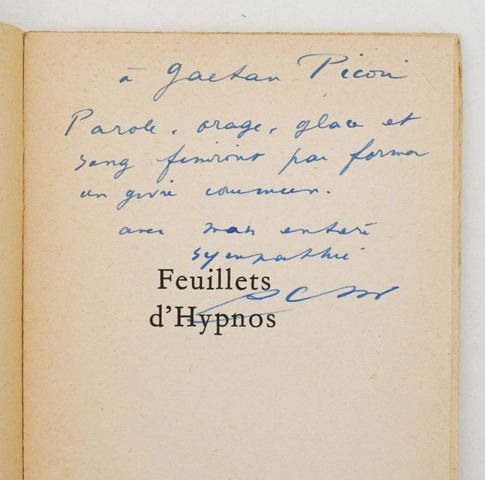 à Gaetan Picon
Parole, orage, glace et
sang finiront par former
un givre commun.
avec mon entière
sympathie
Feuillets
d'Hypnos
R Char